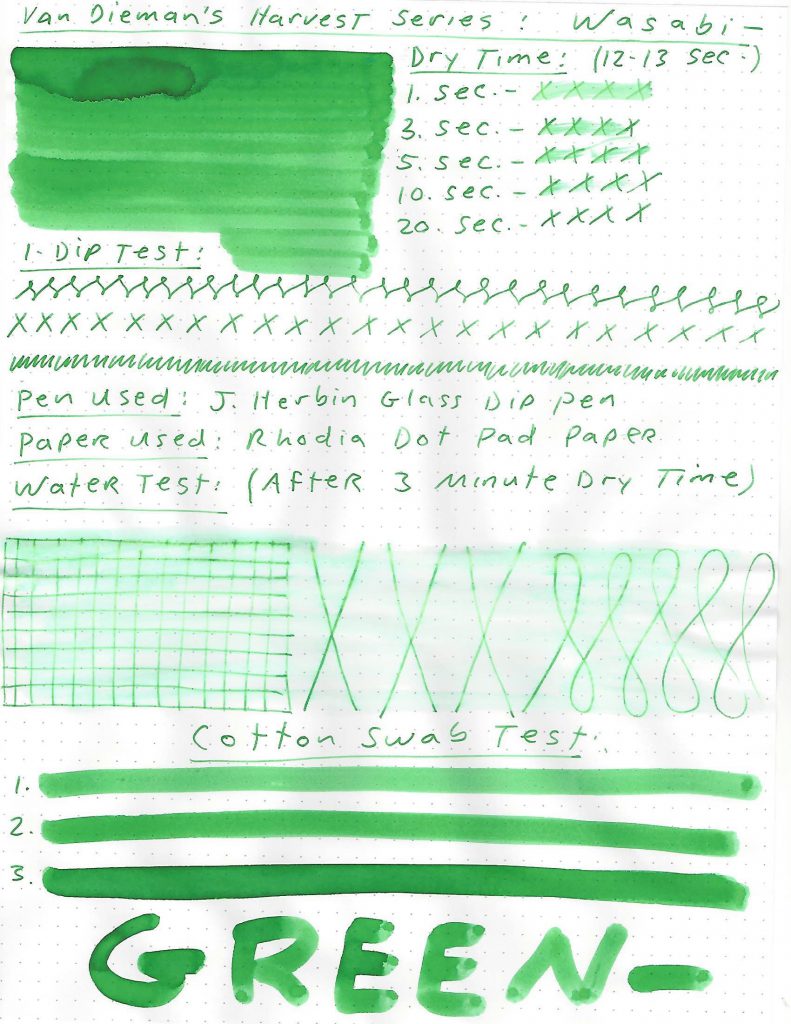 Van Dieman's Harvest Series: Wasabi—
Dry Time: (12-13 sec.)
1. sec.- X X X X
3. sec.- X X X X
5. sec.- X X X X
10. sec.- X X X X
20. sec.- X X X X
1. Dip Test:
X X X X X X X X X X X X X X X X X X X X X X X
Pen Used: J. Herbin Glass Dip Pen
Paper Used: Rhodia Dot Pad Paper
Water Test: (After 3 Minute Dry Time)
Cotton Swab Test:
1.
2.
3.
GREEN—